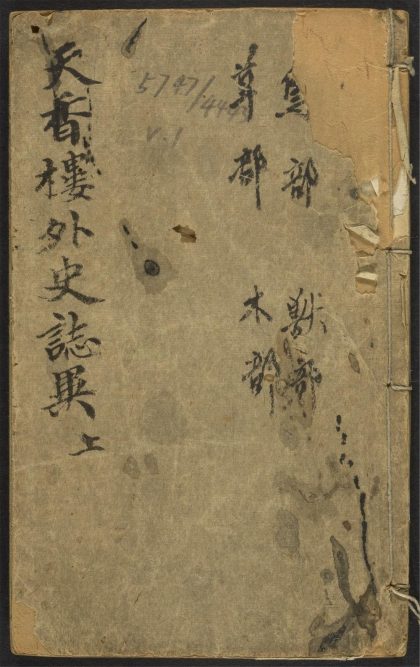 部　獸部
草部　木部
v.1
天香樓外史誌異 上